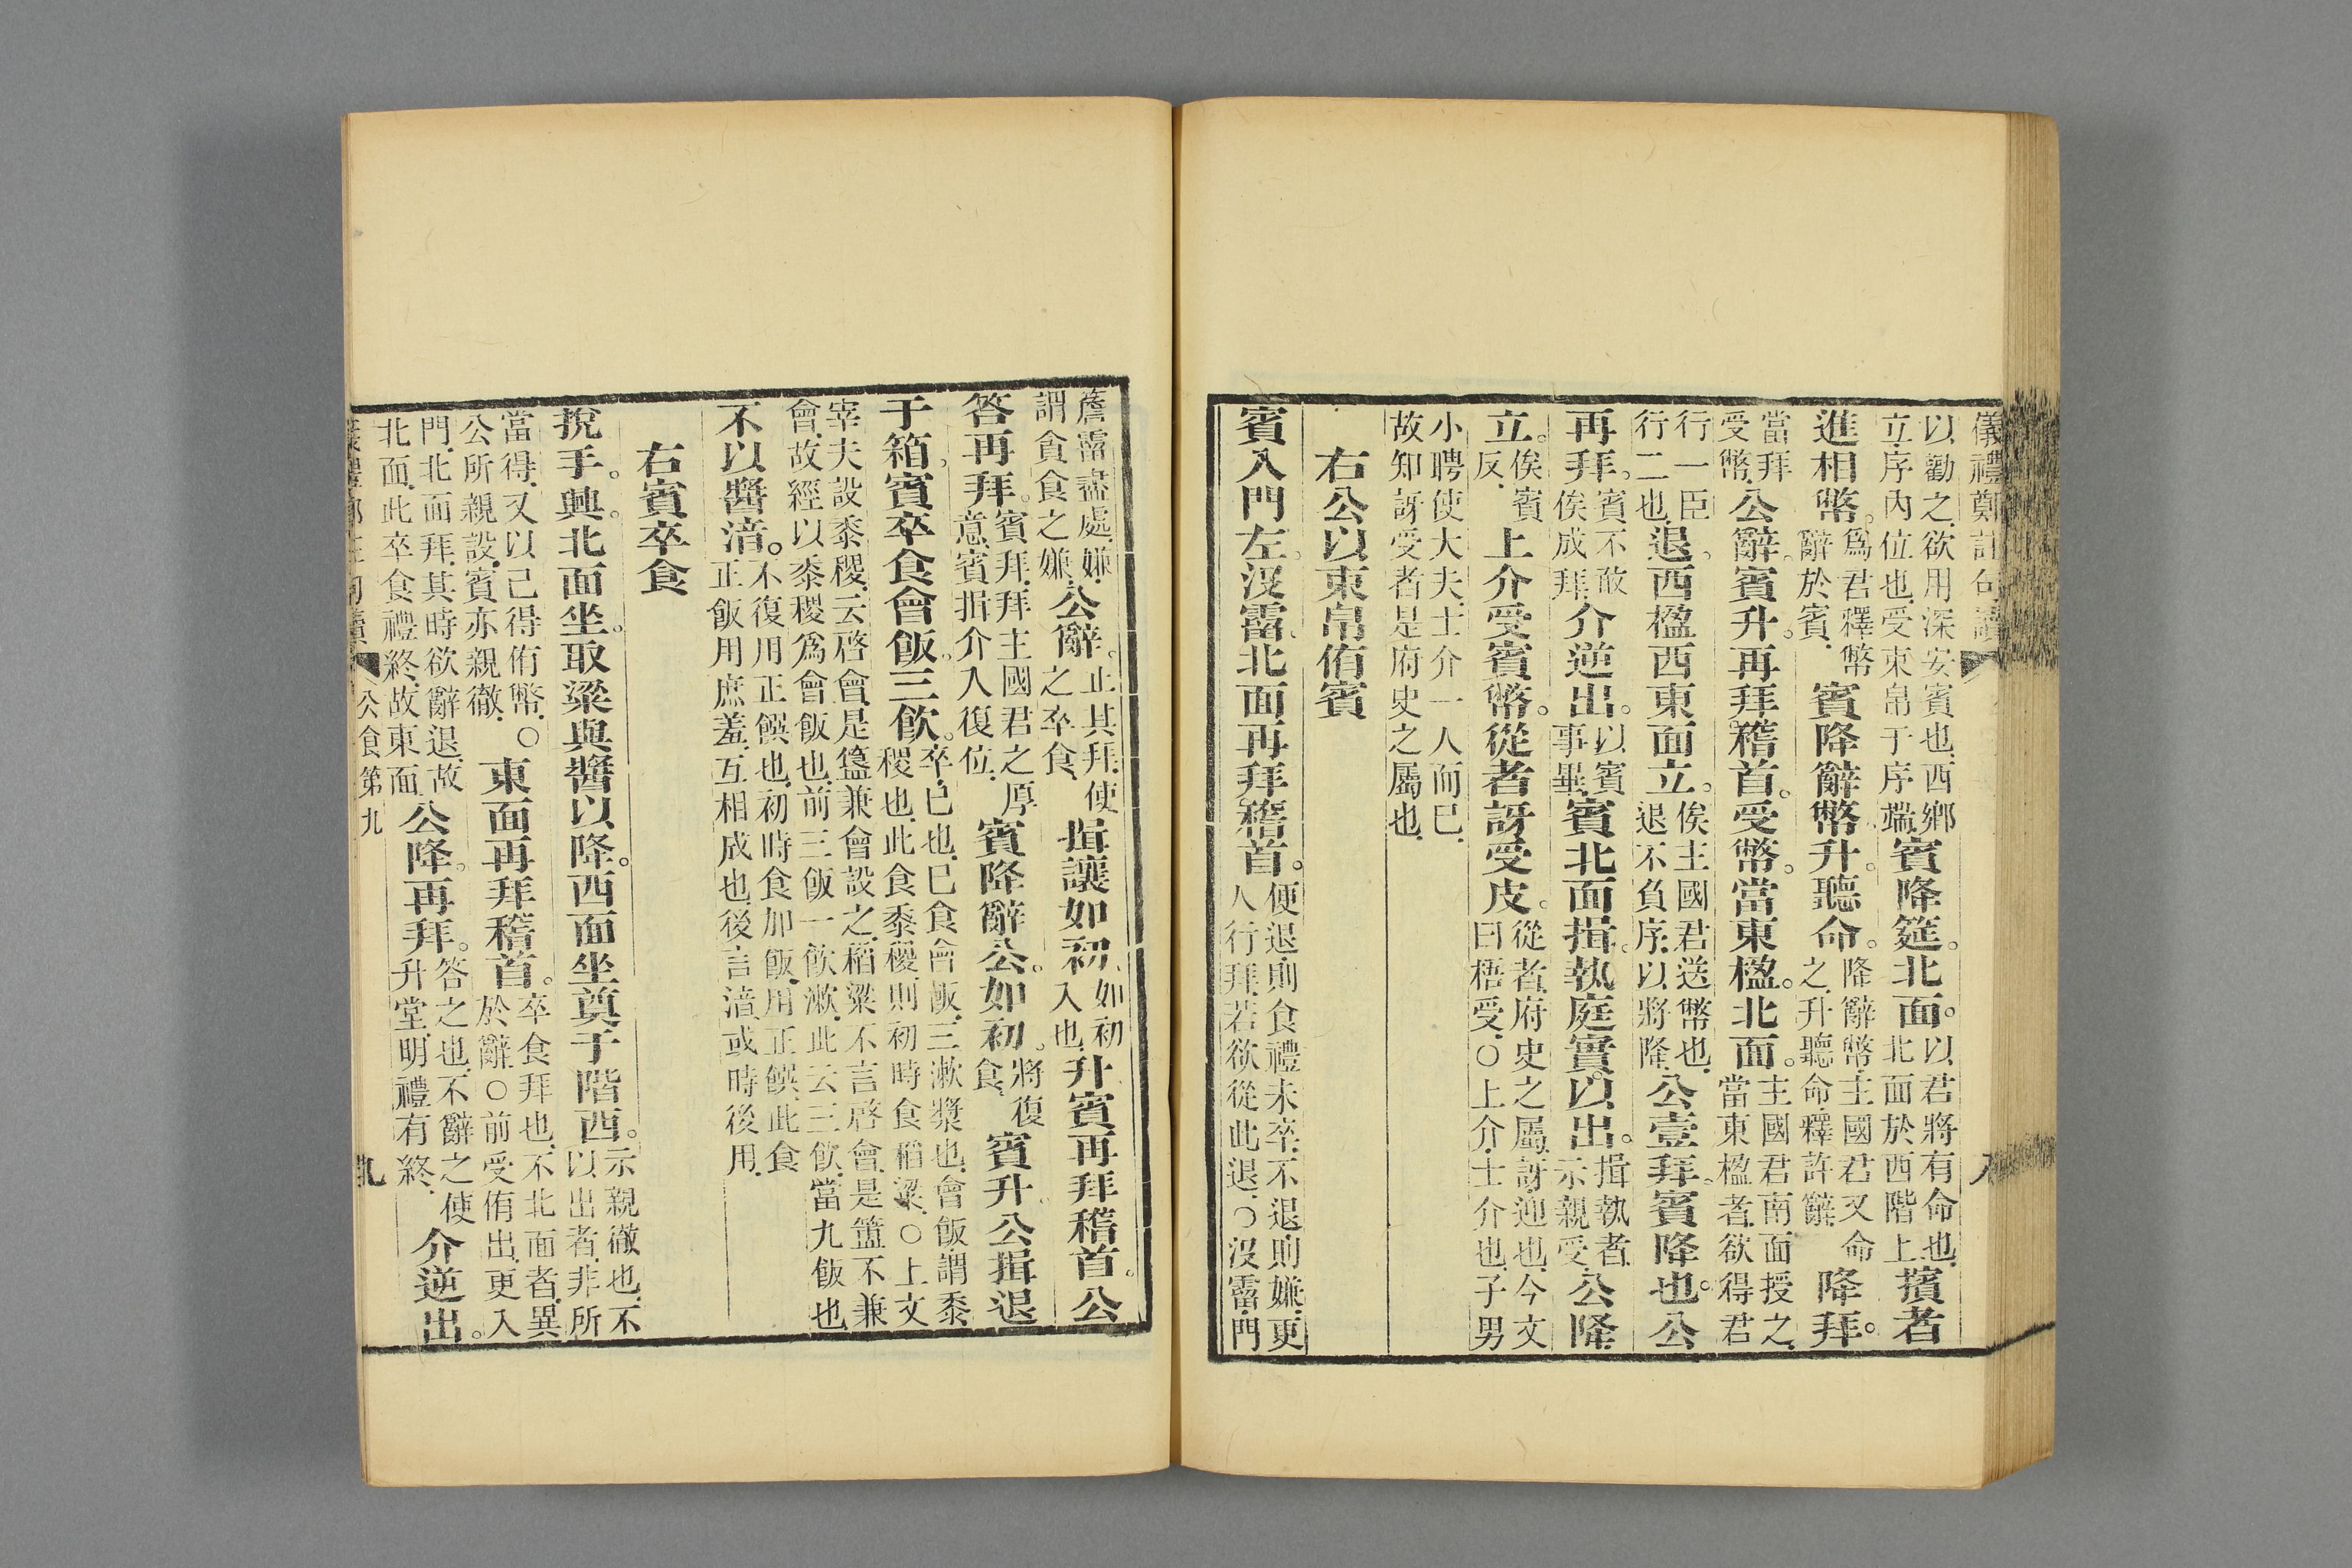 儀禮鄭註句讀
以勸之欲用深安賓也西鄉
立序內位也受束帛于序端賓降筵。北面。以君將有命也
北面於西階上擯者
進相幣。爲君釋幣
辭於賓賓降辭幣。升。聽命。降辭幣主國君又命
之升聽命釋許辭降拜。
當拜
受幣公辭。賓升。再拜稽首。受幣。當東楹。北面。主國君南面授之
當東楹者欲得君
行一臣
行二也退。西楹西東面立。俟主國君送幣也
退不負序以將降公壹拜。賓降也。公
再拜。賓不敢
俟成拜介逆出。以賓
事畢賓北面揖。執庭實。以出。揖執者
示親受公降
立。俟賓
反上介受賓幣。從者訝受皮。從者府史之屬訝迎也今文
曰梧受○上介士介也子男
小聘使大夫士介一人而已
故知訝受者是府史之屬也
右公以束帛侑賓
賓入門左。沒霤。北面再拜稽首。便退則食禮未卒不退則嫌更
入行拜若欲從此退○沒霤門
簷霤盡處嫌
謂貪食之嫌公辭。止其拜使
之卒食揖讓如初。如初
入也升賓再拜稽首。公
答再拜。賓拜拜主國君之厚
意賓揖介入復位賓降辭公。如初。將復
食賓升。公揖退
于箱。賓卒食會飯。三飲。卒已也已食會飯三漱漿也會飯謂黍
稷也此食黍稷則初時食稻粱○上文
宰夫設黍稷云啓會是簋兼會設之稻粱不言啓會是簠不兼
會故經以黍稷爲會飯也前三飯一飲漱此云三飲當九飯也
不以醬湆。不復用正饌也初時食加飯用正饌此食
正飯用庶羞互相成也後言湆或時後用
右賓卒食
挩手。興。北面坐。取粱與醬以降。西面坐奠于階西。示親徹也不
以出者非所
當得又以己得侑幣○
公所親設賓亦親徹東面再拜稽首。卒食拜也不北面者異
於辭○前受侑出更入
門北面拜其時欲辭退故
北面此卒食禮終故東面公降。再拜。答之也不辭之使
升堂明禮有終介逆出。
公食第九
九